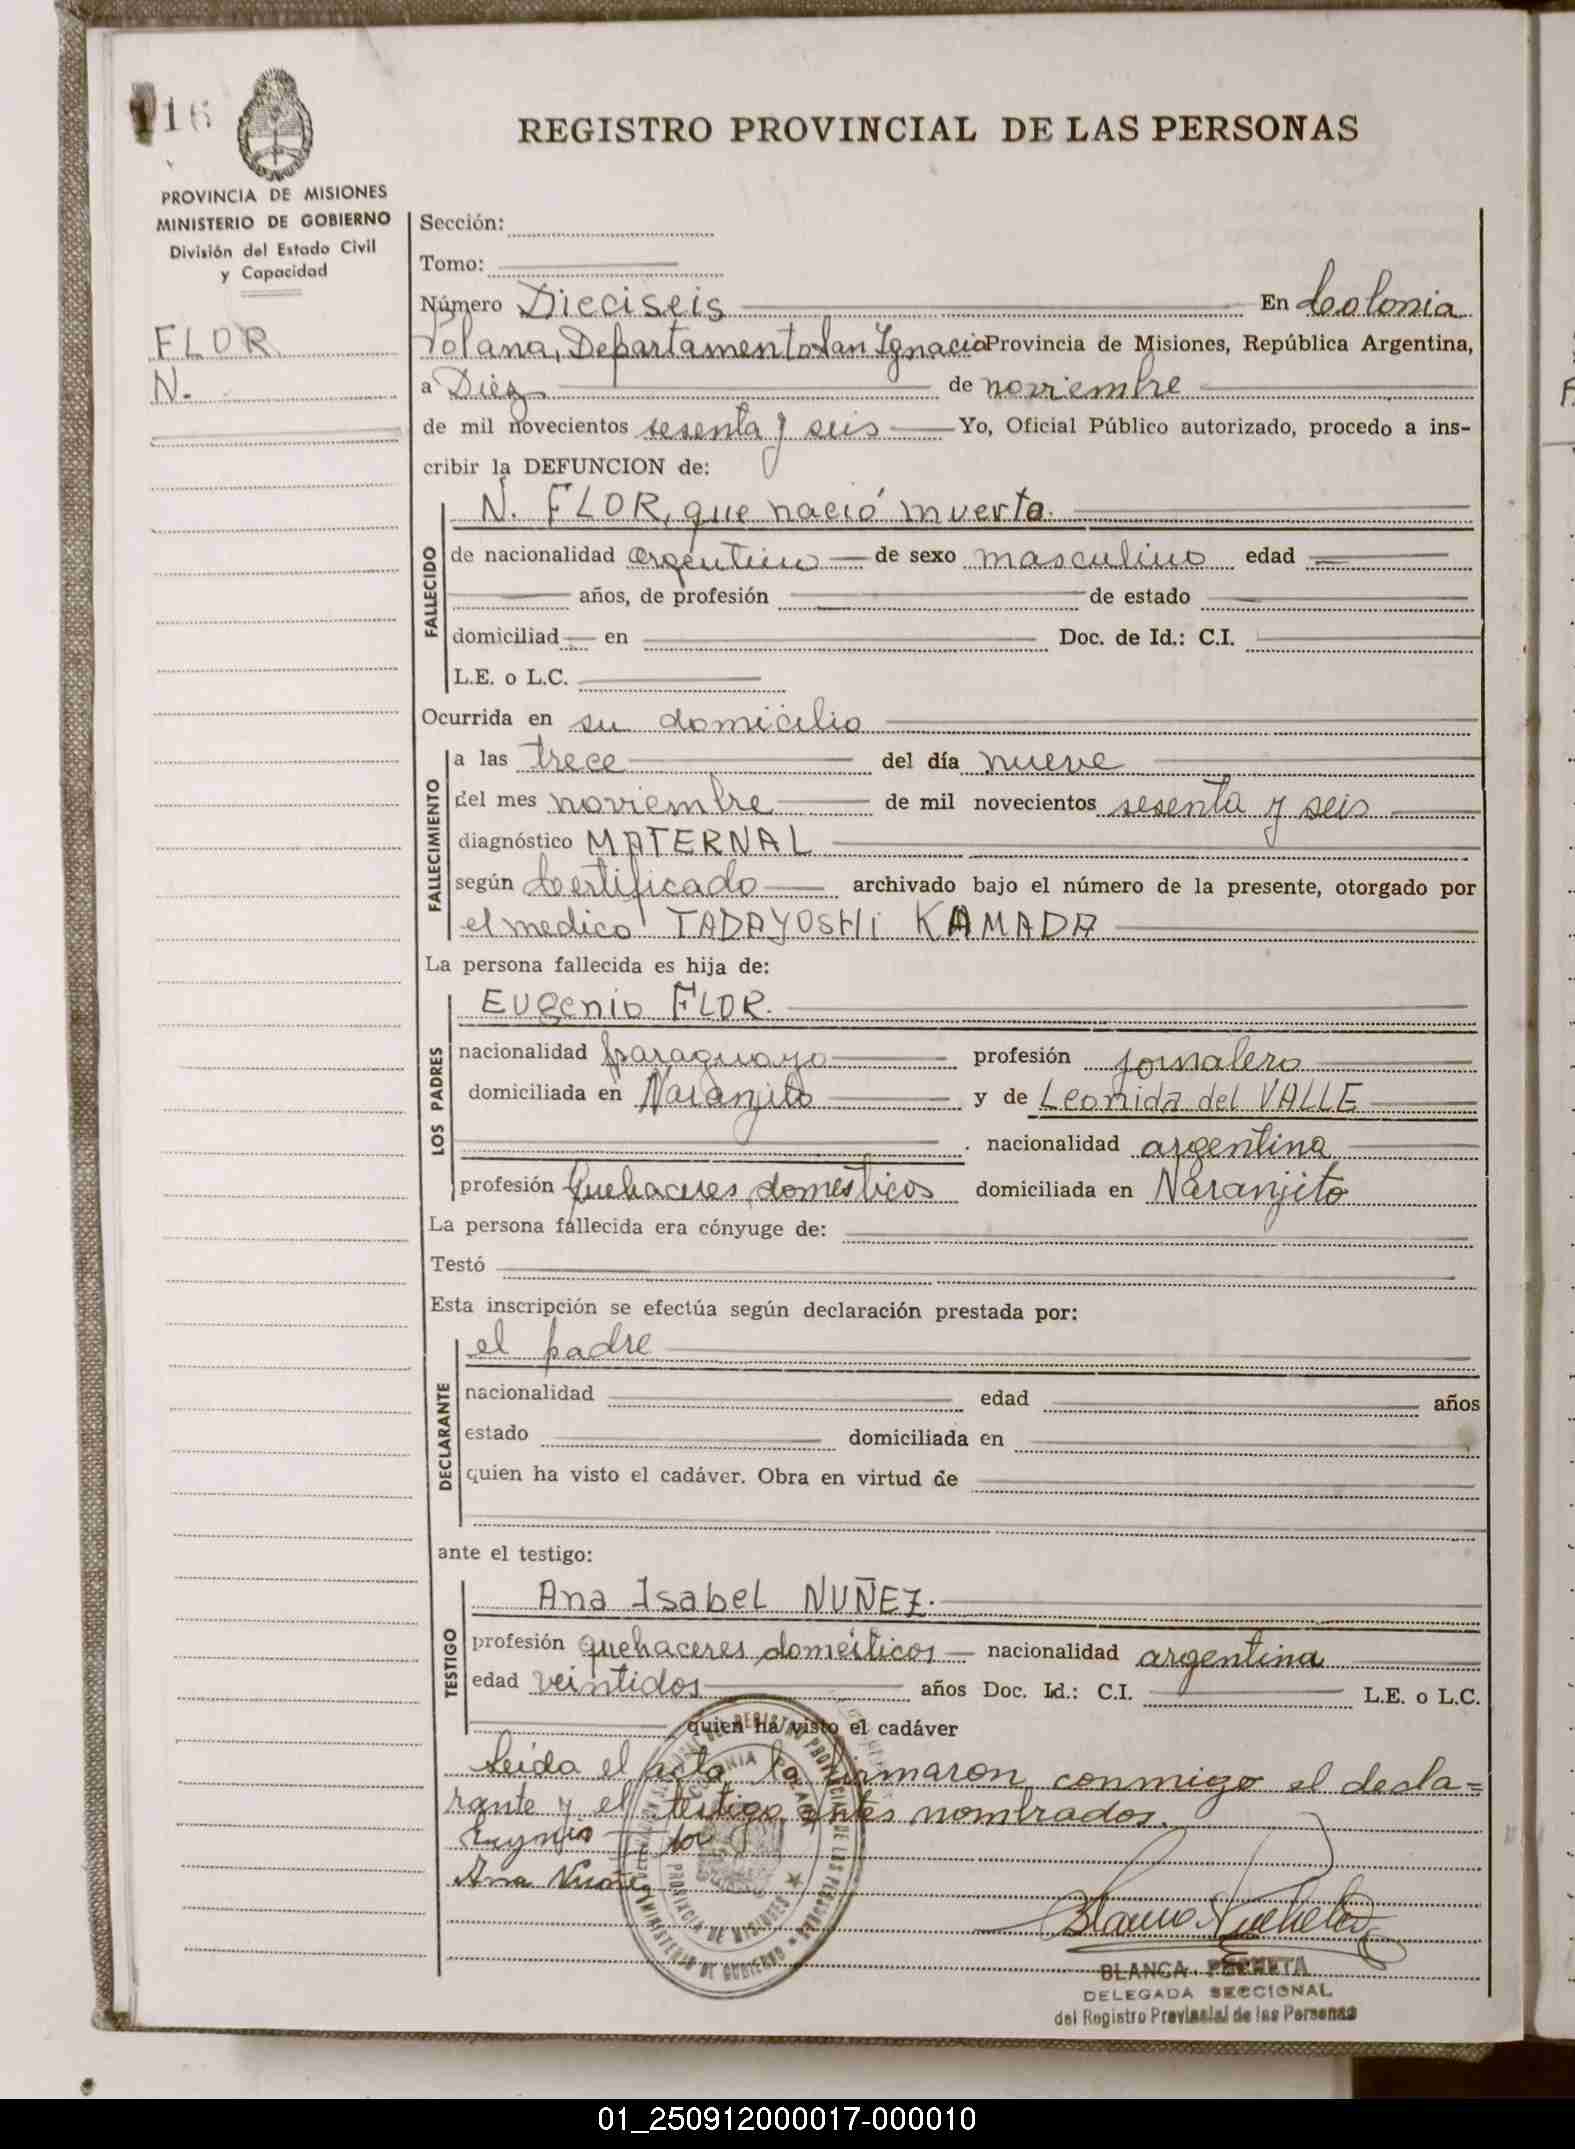 116
REGISTRO PROVINCIAL DE LAS PERSONAS
PROVINCIA DE MISIONES
MINISTERIO DE GOBIERNO
División del Estado Civil
y Capacidad
FLOR
N.
Sección:
Tomo:
Número Dieciseis En Colonia
Polana, Departamento San Ignacio Provincia de Misiones, República Argentina,
a Diez de noviembre
de mil novecientos sesenta y seis Yo, Oficial Público autorizado, procedo a ins-
cribir la DEFUNCION de:
FALLECIDO
N. FLOR, que nació muerto.
de nacionalidad argentino de sexo masculino edad
años, de profesión de estado
domiciliad en Doc. de Id.: C.I.
L.E. o L.C.
Ocurrida en su domicilio
FALLECIMIENTO
a las trece del día nueve
del mes noviembre de mil novecientos sesenta y seis
diagnóstico MATERNAL
según Certificado archivado bajo el número de la presente, otorgado por
el medico TADAYOSHi KAMADA
La persona fallecida es hija de:
LOS PADRES
Eugenio FLOR.
nacionalidad paraguayo profesión jornalero
domiciliada en Naranjito y de Leonida del VALLE
nacionalidad argentina
profesión quehaceres domésticos domiciliada en Naranjito
La persona fallecida era cónyuge de:
Testó
Esta inscripción se efectúa según declaración prestada por:
DECLARANTE
el padre
nacionalidad edad años
estado domiciliada en
quien ha visto el cadáver. Obra en virtud de
ante el testigo:
TESTIGO
Ana Isabel NUÑEZ.
profesión quehaceres domésticos nacionalidad argentina
edad veintidos años Doc. Id.: C.I. L.E. o L.C.
quien ha visto el cadáver
Leida el acta, la firmaron conmigo el decla=
rante y el testigo antes nombrados.
Flor
Ana Nuñez
PROVINCIA DE MISIONES
MINISTERIO DE GOBIERNO
BLANCA
DELEGADA SECCIONAL
del Registro Provincial de las Personas
01_250912000017-000010